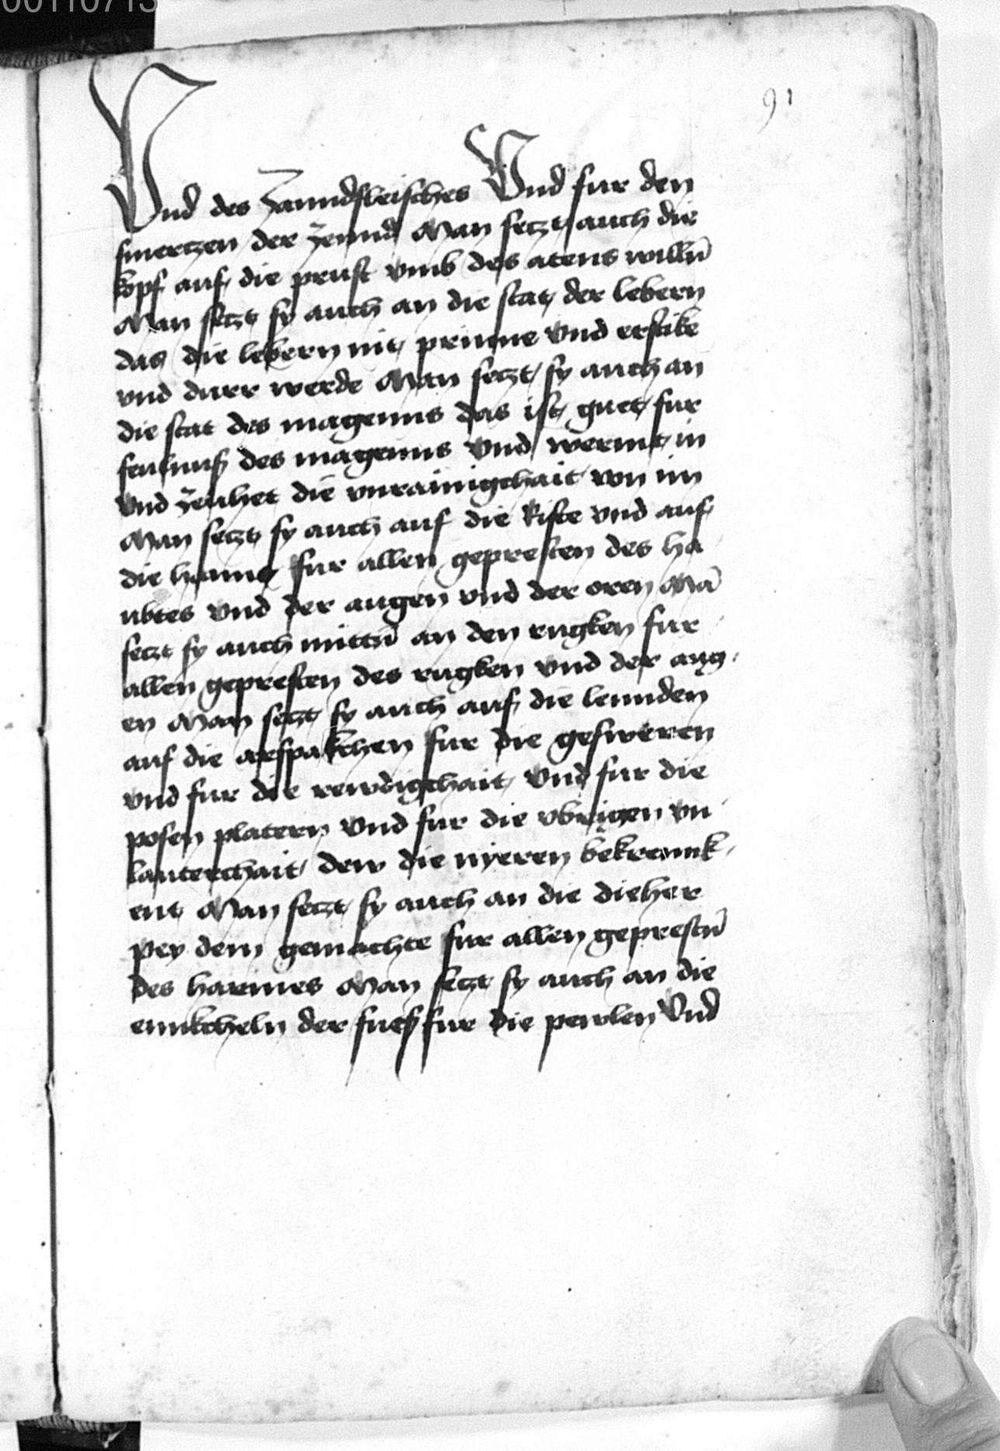 91
Vnd des Zanndfleisches Vnd fur den
smertzen der Zennd Man setzt auch die
kopf auf die prust vmb des atens willn̄
Man setzt sy auch an die stat der lebern
das die lebern nit prinne vnd erstike
vnd durr werde Man setzt sy auch an
die stat des magenns das ist guet fur
feulnuß des magenns Vnd wermt in
vnd zeuhet die vnrainigchait von im
Man setzt sy auch auf die Riste vnd auf
die hanng fur allen gepresten des ha
ubtes vnd der augen vnd der oren Mā
setzt sy auch mittn̄ an den rugken fur
allen gepresten des rugken vnd der aug
en Man setzt sy auch auf die lennden
auf die arspakchen fur die gesweren
vnd fur die rewdigchait Vnd fur die
posen platern Vnd fur die vbrigen vn
lauterchait dew die nyeren bekrennk
ent Man setzt sy auch an die dieher
pey dem gemachte fur allen geprestn̄
des harmes Man setzt sy auch an die
ennkcheln der fueß fur die pewlen Vnd